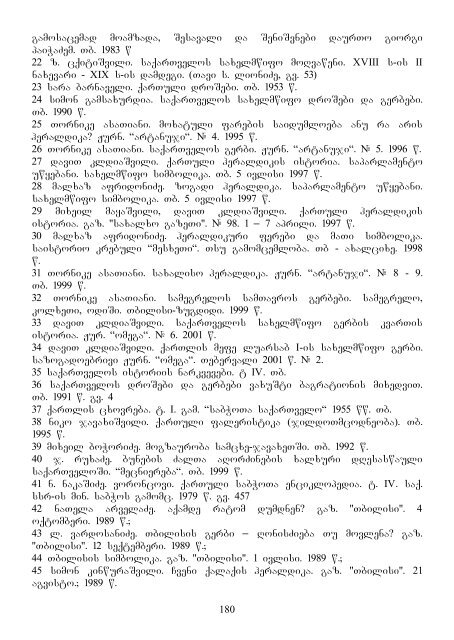 გამოსაცემად მოამზადა, შესავალი და შენიშვნები დაურთო გიორგი
პაიჭაძემ. თბ. 1983 წ
22 ზ. ცქიტიშვილი. საქართველოს სახელმწიფო მოღვაწენი. XVIII ს-ის II
ნახევარი - XIX ს-ის დამდეგი. (თავი ს. ლიონიძე, გვ. 53)
23 სარა ბარნაველი. ქართული დროშები. თბ. 1953 წ.
24 სიმონ გამსახურდია. საქართველოს სახელმწიფო დროშები და გერბები.
თბ. 1990 წ.
25 თორნიკე ასათიანი. მოხატული ფარების საიდუმლოება ანუ რა არის
ჰერალდიკა? ჟურნ. “არტანუჯი“. № 4. 1995 წ.
26 თორნიკე ასათიანი. საქართველოს გერბი. ჟურნ. “არტანუჯი“. № 5. 1996 წ.
27 დავით კლდიაშვილი. ქართული ჰერალდიკის ისტორია. საპარლამენტო
უწყებანი. სახელმწიფო სიმბოლიკა. თბ. 5 ივლისი 1997 წ.
28 მალხაზ აფრიდონიძე. ზოგადი ჰერალდიკა. საპარლამენტო უწყებანი.
სახელმწიფო სიმბოლიკა. თბ. 5 ივლისი 1997 წ.
29 მიხეილ მაყაშვილი, დავით კლდიაშვილი. ქართული ჰერალდიკის
ისტორია. გაზ. "სახალხო გაზეთი". № 98. 1 – 7 აპრილი. 1997 წ.
30 მალხაზ აფრიდონიძე. ჰერალდიკური ფერები და მათი სიმბოლიკა.
საისტორიო კრებული “მესხეთი“. თსუ გამომცემლობა. თბ - ახალციხე. 1998
წ.
31 თორნიკე ასათიანი. სახალისო ჰერალდიკა. ჟურნ. “არტანუჯი“. № 8 - 9.
თბ. 1999 წ.
32 თორნიკე ასათიანი. სამეგრელოს სამთავროს გერბები. სამეგრელო,
კოლხეთი, ოდიში. თბილისი-ზუგდიდი. 1999 წ.
33 დავით კლდიაშვილი. საქართველოს სახელმწიფო გერბის კვართის
ისტორია. ჟურ. “ომეგა“. № 6. 2001 წ.
34 დავით კლდიაშვილი. ქართლის მეფე ლუარსაბ I-ის სახელმწიფო გერბი.
საზოგადოებრივი ჟურნ. “ომეგა“. თებერვალი 2001 წ. № 2.
35 საქართველოს ისტორიის ნარკვევები. ტ IV. თბ.
36 საქართველოს დროშები და გერბები ვახუშტი ბაგრატიონის მიხედვით.
თბ. 1991 წ. გვ. 4
37 ქართლის ცხოვრება. ტ. I. გამ. “საბჭოთა საქართველო“ 1955 წწ. თბ.
38 ნიკო ჯავახიშვილი. ქართული ფალერისტიკა (ჯილდოთმცოდნეობა). თბ.
1995 წ.
39 მიხეილ ბოჭორიძე. მოგზაურობა სამცხე-ჯავახეთში. თბ. 1992 წ.
40 ჯ. რუხაძე. ბუნების ძალთა აღორძინების ხალხური დღესასწაული
საქართველოში. “მეცნიერება“. თბ. 1999 წ.
41 ნ. ნაკაშიძე. ვორონცოვი. ქართული საბჭოთა ენციკლოპედია. ტ. IV. საქ.
სსრ-ის მინ. საბჭოს გამომც. 1979 წ. გვ. 457
42 ნათელა არველაძე. აქამდე რატომ დუმდნენ? გაზ. "თბილისი". 4
ოქტომბერი. 1989 წ.;
43 ლ. ვარდოსანიძე. თბილისის გერბი – ღონისძიება თუ მოვლენა? გაზ.
"თბილისი". 12 სექტემბერი. 1989 წ.;
44 თბილისის სიმბოლიკა. გაზ. "თბილისი". 1 ივლისი. 1989 წ.;
45 სიმონ კინწურაშვილი. ჩვენი ქალაქის ჰერალდიკა. გაზ. "თბილისი". 21
აგვისტო.; 1989 წ.
180